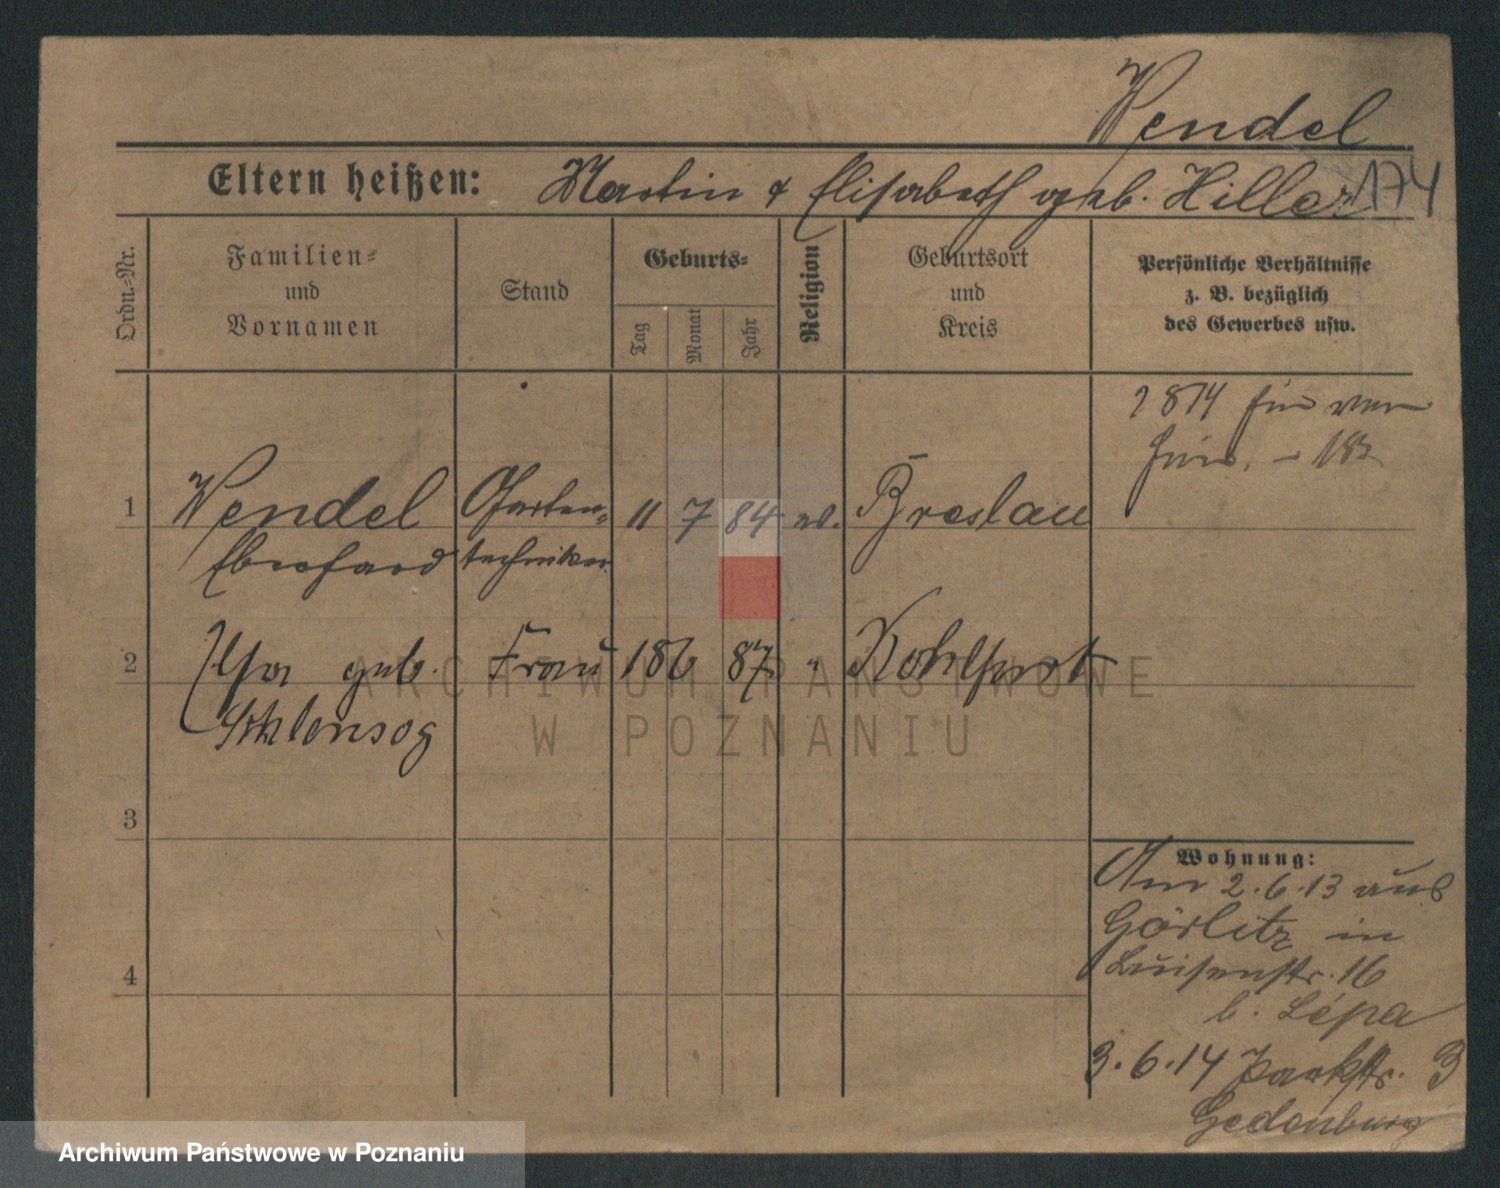 Wendel
Eltern heißen: Martin & Elisabeth geb. Hiller 174
Ordn.-Nr.
Familien- und Vornamen
Stand
Geburts-
Tag Monat Jahr
Religion
Geburtsort und Kreis
Persönliche Verhältnisse
z. B. bezüglich
des Gewerbes usw.
1 Wendel Garten- 11 7 84 ev. Breslau
Eberhard techniker
2 geb. Frau 18 6 87 "
3
4
Wohnung:
Am 2.6.13 aus
Görlitz in
Luisenstr. 16
b. Lépa
3.6.14 Parkstr. 3
ARCHIWUM PAŃSTWOWE
W POZNANIU
Archiwum Państwowe w Poznaniu